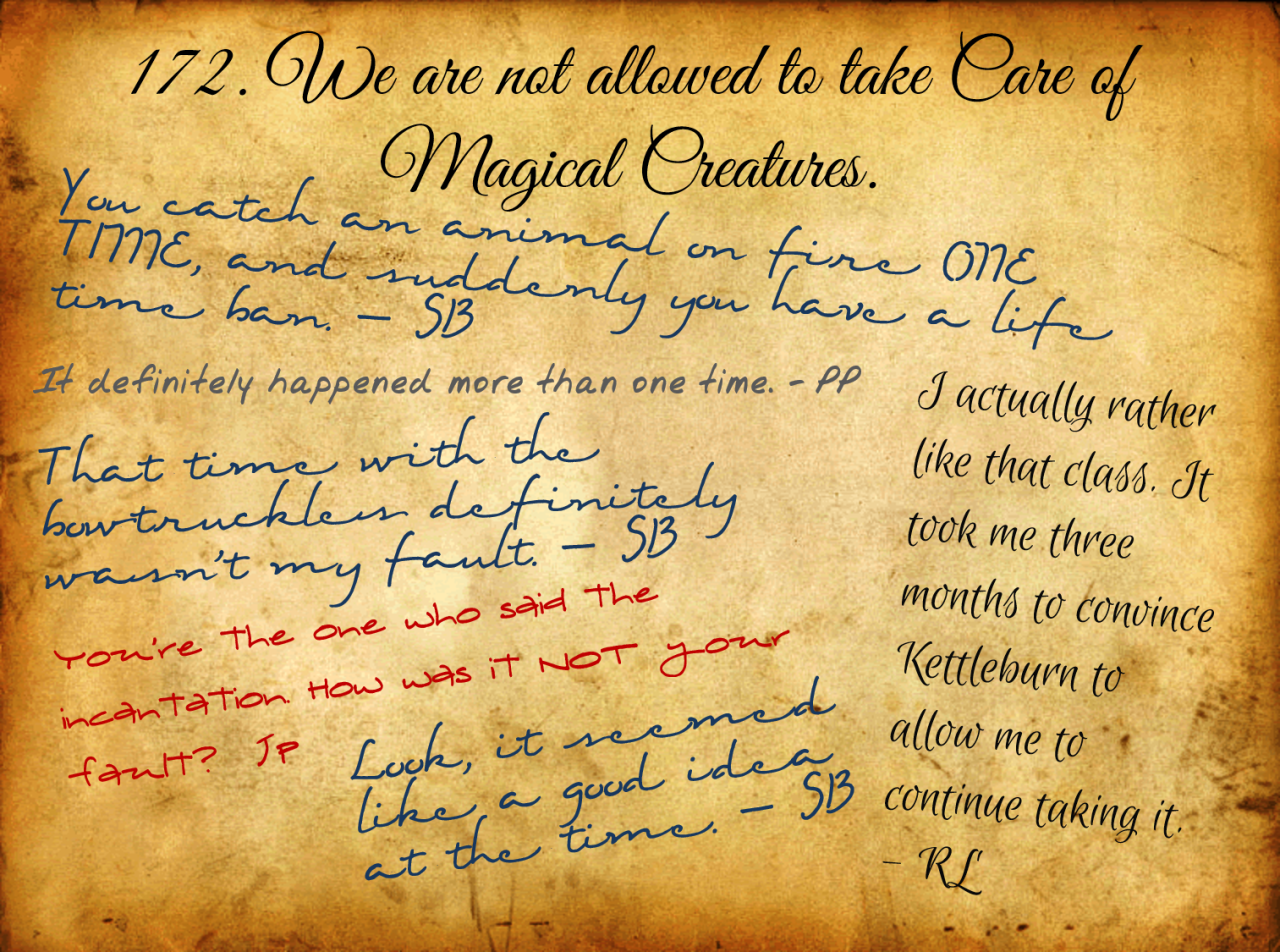 172. We are not allowed to take Care of
Magical Creatures.
You catch an animal on fire ONE
TIME, and suddenly you have a life
time ban. – SB
It definitely happened more than one time. - PP
That time with the
bowtruckles definitely
wasn't my fault. – SB
You're the one who said the
incantation. How was it NOT your
fault? JP
Look, it seemed
like a good idea
at the time. – SB
I actually rather
like that class. It
took me three
months to convince
Kettleburn to
allow me to
continue taking it.
- RL